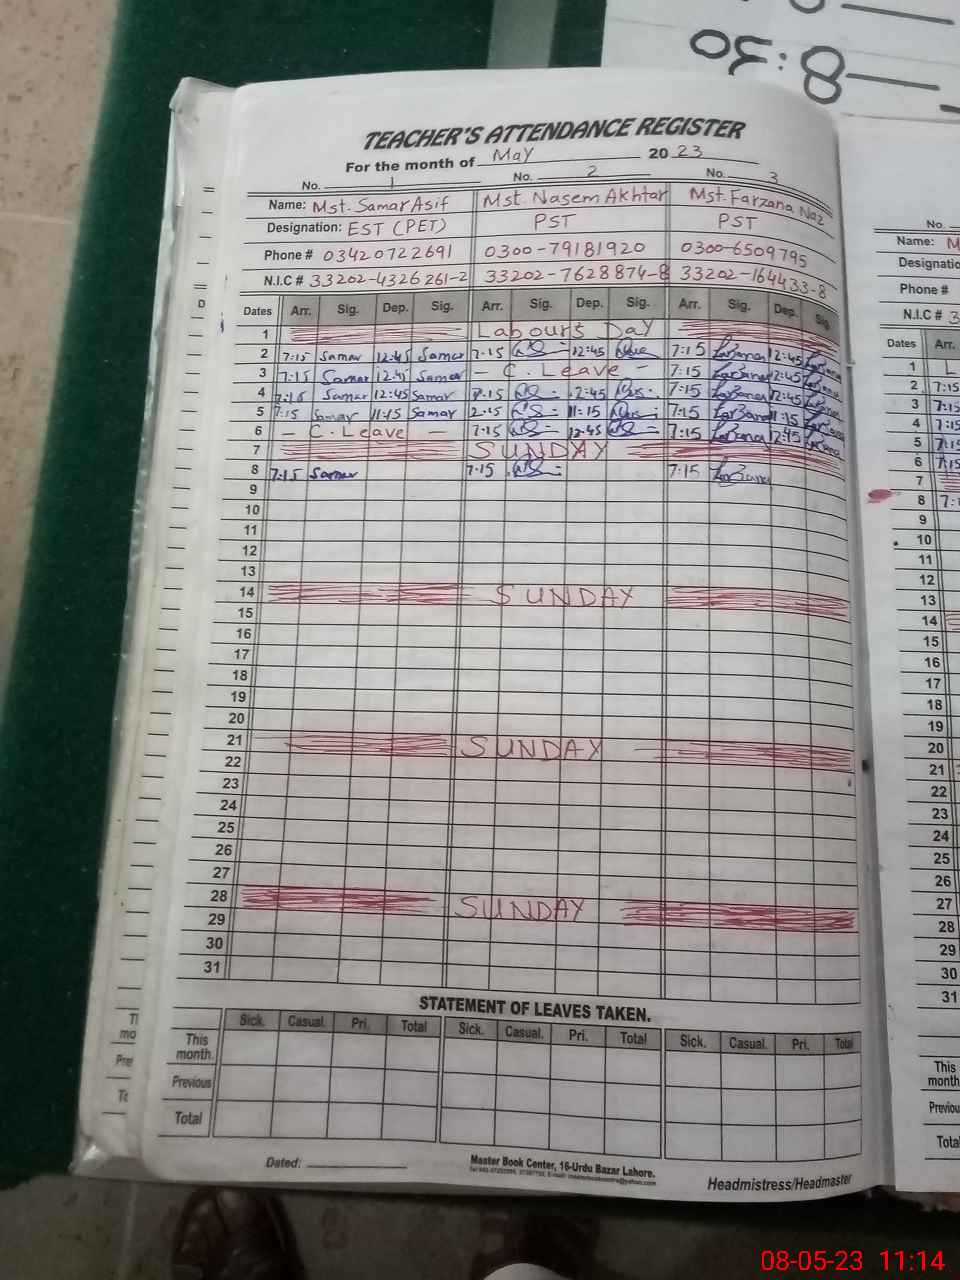 8:30
TEACHER'S ATTENDANCE REGISTER
For the month of May 2023
No. 1 No. 2 No. 3
Name: Mst. Samar Asif Mst. Nasem Akhtar Mst. Farzana Naz
Designation: EST (PET) PST PST
Phone # 03420722691 0300-79181920 0300-6509795
N.I.C # 33202-4326261-2 33202-7628874-8 33202-164433-8
Dates Arr. Sig. Dep. Sig. Arr. Sig. Dep. Sig. Arr. Sig. Dep. Sig.
1 Labours Day
2 7:15 Samar 12:45 Samar 7:15 12:45 7:15 12:45
3 7:15 Samar 12:45 Samar - C. Leave - 7:15 12:45
4 7:15 Samar 12:45 Samar 7:15 12:45 7:15 12:45
5 7:15 Samar 11:15 Samar 7:15 11:15 7:15 11:15
6 - C. Leave - 7:15 12:45 7:15 12:45
7 SUNDAY
8 7:15 Samar 7:15 7:15
9
10
11
12
13
14 SUNDAY
15
16
17
18
19
20
21 SUNDAY
22
23
24
25
26
27
28 SUNDAY
29
30
31
STATEMENT OF LEAVES TAKEN.
Sick. Casual. Pri. Total Sick. Casual. Pri. Total Sick. Casual. Pri. Total
This month.
Previous
Total
Dated:
Master Book Center, 16-Urdu Bazar Lahore.
Headmistress/Headmaster
No.
Name: M
Designatio
Phone #
N.I.C # 3
Dates Arr.
1 L
2 7:15
3 7:15
4 7:15
5 7:15
6 7:15
7
8 7:1
9
10
11
12
13
14
15
16
17
18
19
20
21
22
23
24
25
26
27
28
29
30
31
This month
Previou
Total
08-05-23 11:14